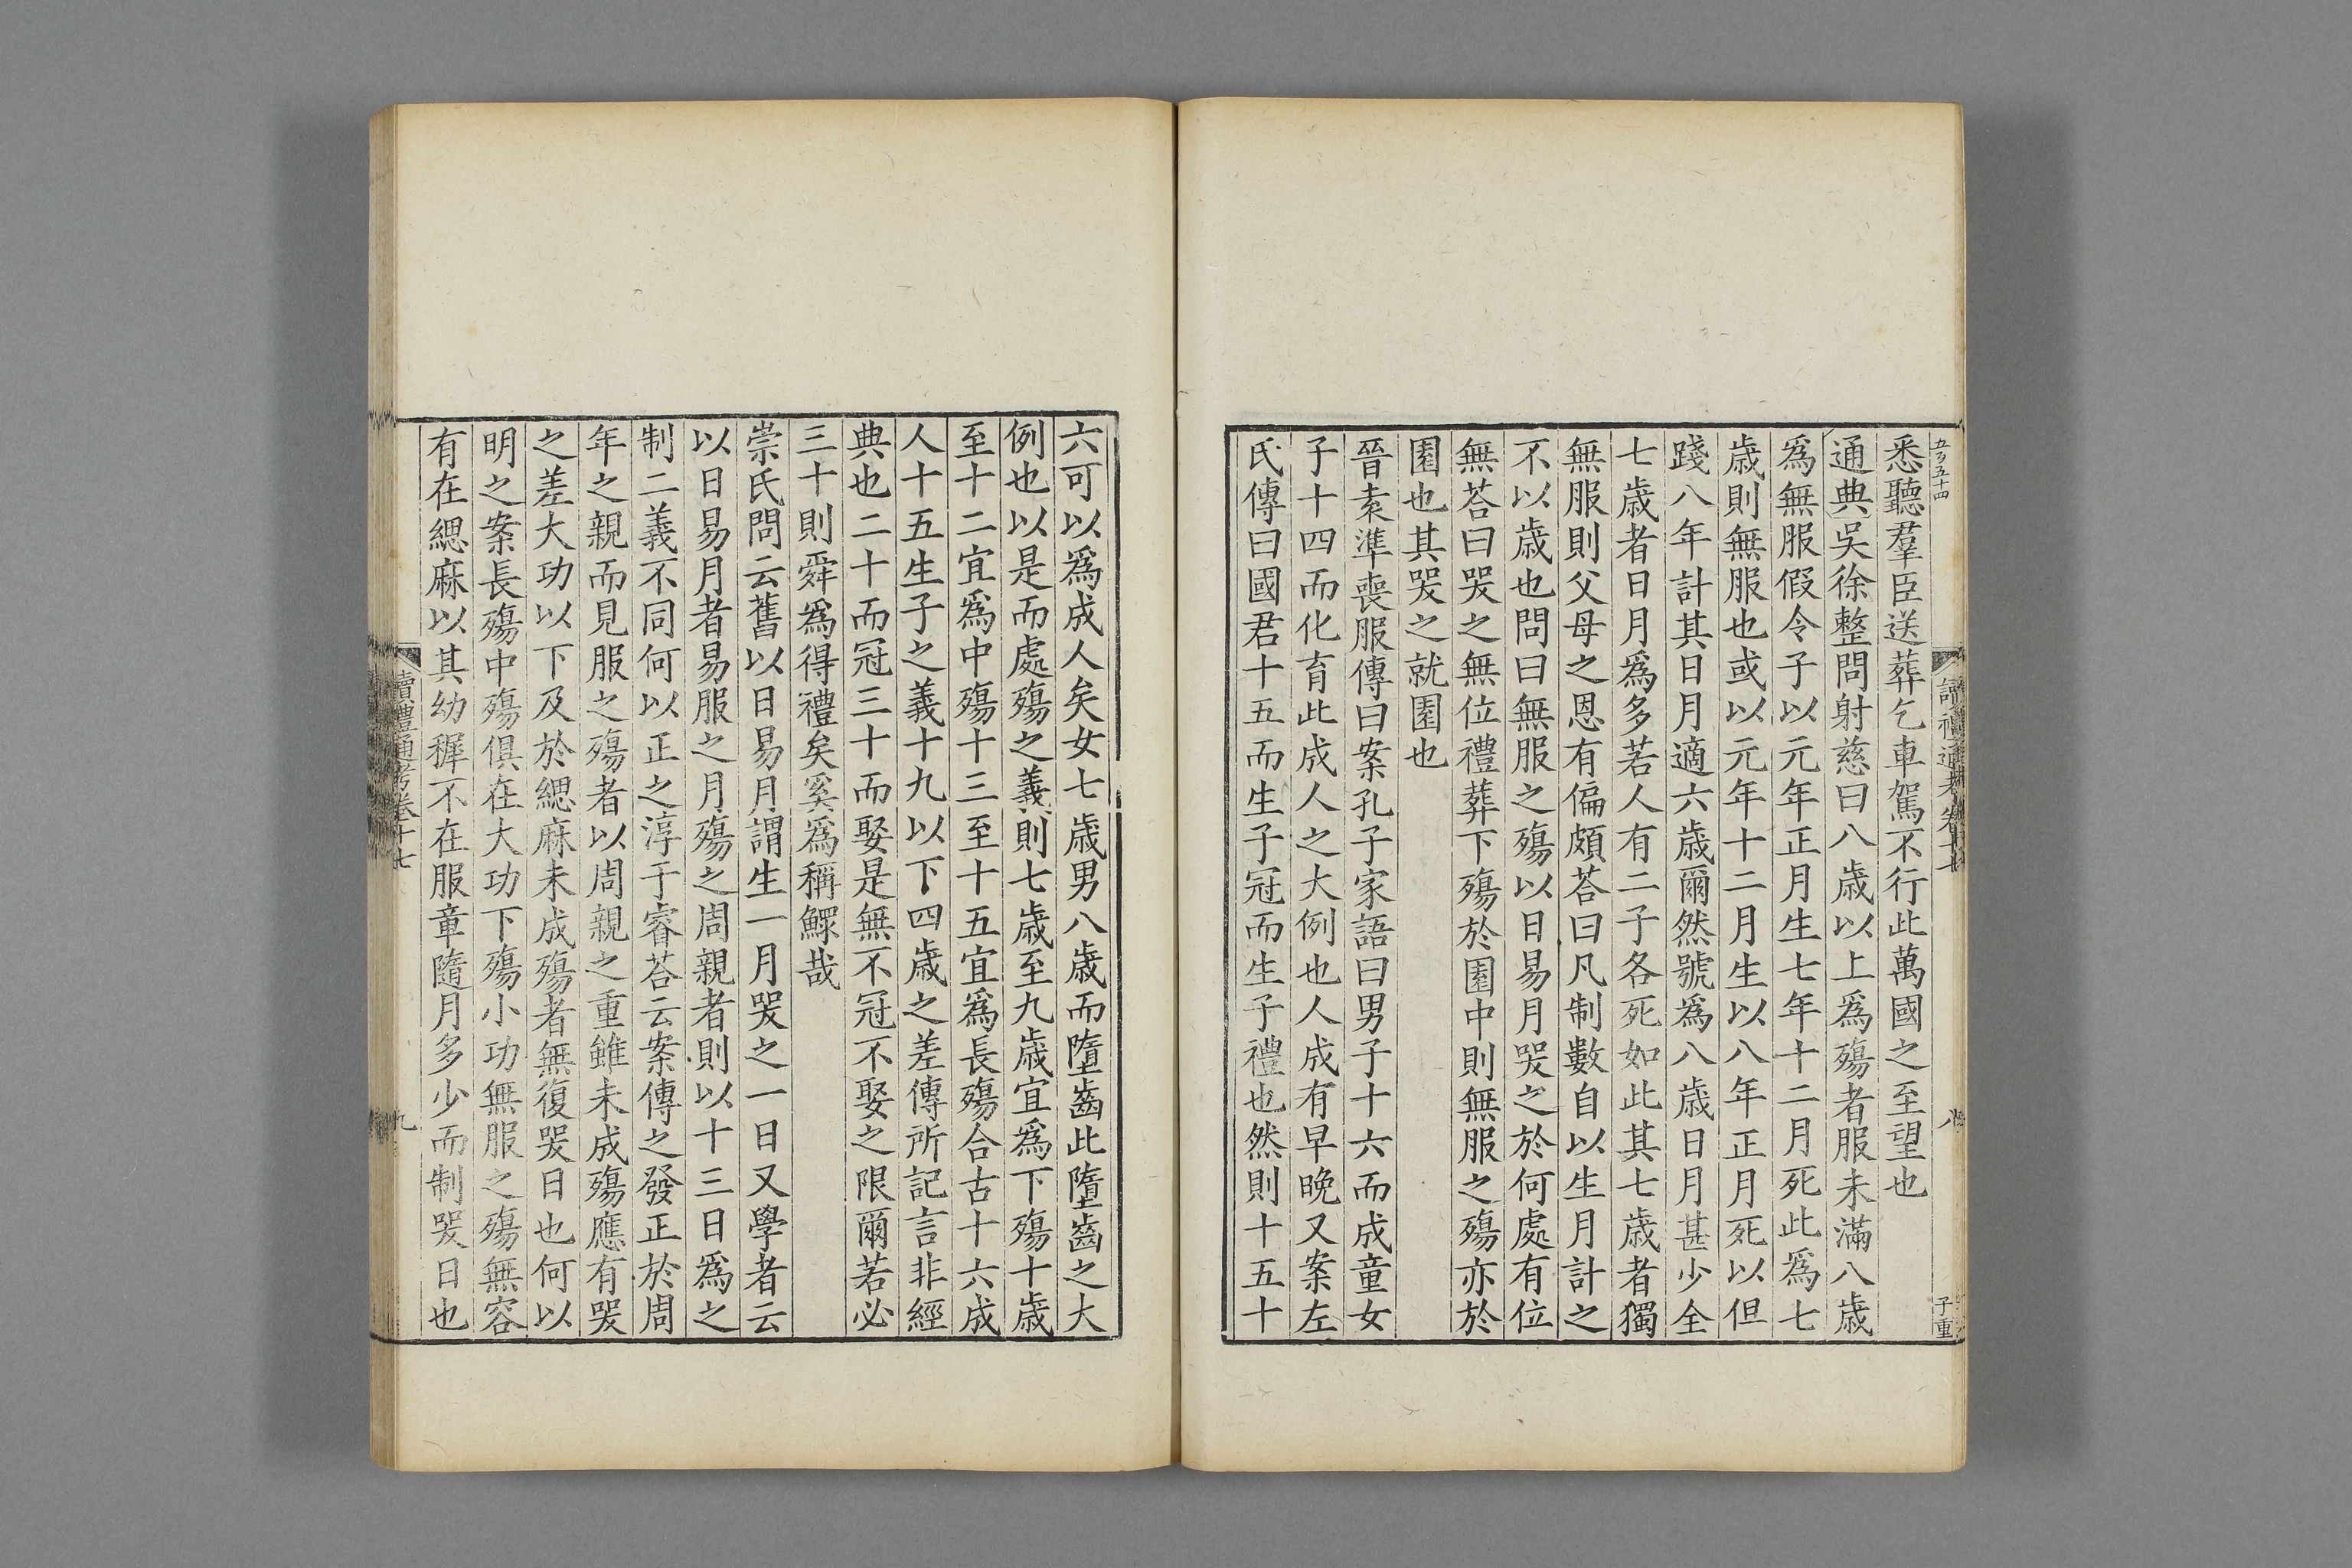 五百五十四
讀禮通考卷十七
八
子重
悉聽羣臣送葬乞車駕不行此萬國之至望也
通典吳徐整問射慈曰八歲以上爲殤者服未滿八歲
爲無服假令子以元年正月生七年十二月死此爲七
歲則無服也或以元年十二月生以八年正月死以但
踐八年計其日月適六歲爾然號爲八歲日月甚少全
七歲者日月爲多若人有二子各死如此其七歲者獨
無服則父母之恩有偏頗荅曰凡制數自以生月計之
不以歲也問曰無服之殤以日易月哭之於何處有位
無荅曰哭之無位禮葬下殤於園中則無服之殤亦於
園也其哭之就園也
晉袁準喪服傳曰案孔子家語曰男子十六而成童女
子十四而化育此成人之大例也人成有早晚又案左
氏傳曰國君十五而生子冠而生子禮也然則十五十
六可以爲成人矣女七歲男八歲而墮齒此墮齒之大
例也以是而處殤之義則七歲至九歲宜爲下殤十歲
至十二宜爲中殤十三至十五宜爲長殤合古十六成
人十五生子之義十九以下四歲之差傳所記言非經
典也二十而冠三十而娶是無不冠不娶之限爾若必
三十則舜爲得禮矣奚爲稱鰥哉
崇氏問云舊以日易月謂生一月哭之一日又學者云
以日易月者易服之月殤之周親者則以十三日爲之
制二義不同何以正之淳于睿荅云案傳之發正於周
年之親而見服之殤者以周親之重雖未成殤應有哭
之差大功以下及於緦麻未成殤者無復哭日也何以
明之案長殤中殤俱在大功下殤小功無服之殤無容
有在緦麻以其幼稺不在服章隨月多少而制哭日也
讀禮通考卷十七
九